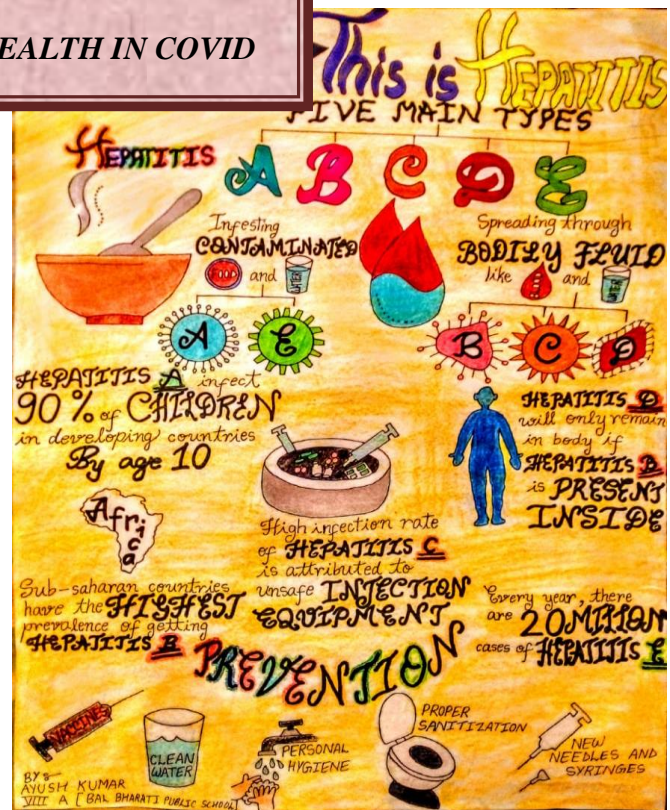 EALTH IN COVID
This is HEPATITIS
FIVE MAIN TYPES
HEPATITIS A B C D E
Infesting
CONTAMINATED
and WATER
Spreading through
BODILY FLUID
like and WATER
A E
B C D
HEPATITIS A infect
90% of CHILDREN
in developing countries
By age 10
HEPATITIS D
will only remain
in body if
HEPATITIS B
is PRESENT
INSIDE
Africa
High infection rate
of HEPATITIS C
is attributed to
unsafe INJECTION
EQUIPMENT
Sub-saharan countries
have the HIGHEST
prevalence of getting
HEPATITIS B
Every year, there
are 20 MILLION
cases of HEPATITIS E
PREVENTION
VACCINES
CLEAN
WATER
PERSONAL
HYGIENE
PROPER
SANITIZATION
NEW
NEEDLES AND
SYRINGES
BY :-
AYUSH KUMAR
VIII A [BAL BHARATI PUBLIC SCHOOL]